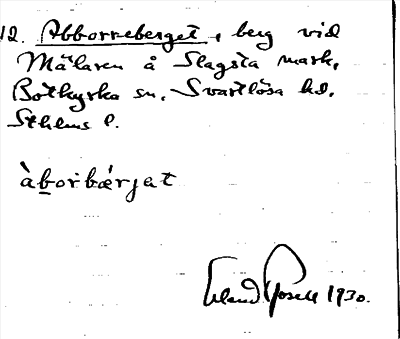 12. Abborreberget, berg vid
Mälaren å Slagsta mark,
Botkyrka sn, Svartlösa hd.
Sthlms l.
àborbærjat
Erland Rosell 1930.